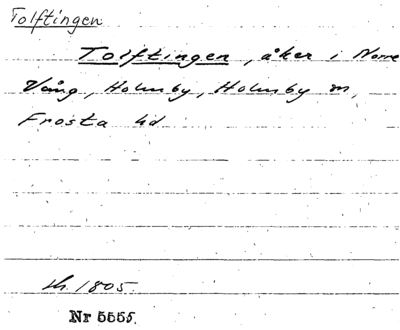 Tolftingen
Tolftingen, åker i Norre
Vång, Holmby, Holmby m,
Frosta hd
1805.
Nr 5555.